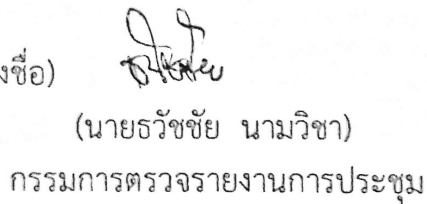 งชื่อ) ธวัชชัย
(นายธวัชชัย นามวิชา)
กรรมการตรวจรายงานการประชุม